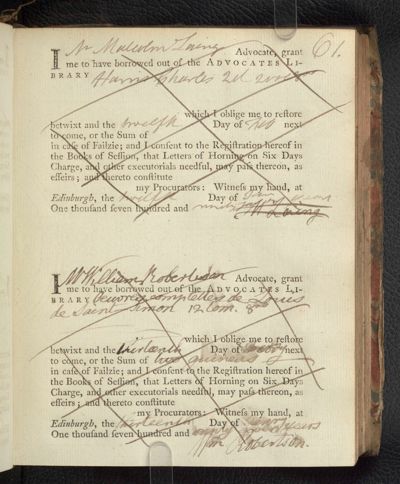 61.
I Mr Malcolm Laing Advocate, grant
me to have borrowed out of the ADVOCATES LI-
BRARY Harris Charles 2d 2 vols
which I oblige me to reſtore
betwixt and the twelfth Day of next
to come, or the Sum of
in caſe of Failzie; and I conſent to the Regiſtration hereof in
the Books of Seſſion, that Letters of Horning on Six Days
Charge, and other executorials needful, may paſs thereon, as
effeirs; and thereto conſtitute
my Procurators: Witneſs my hand, at
Edinburgh, the twelfth Day of
One thouſand ſeven hundred and
M Laing
I Mr William Robertson Advocate, grant
me to have borrowed out of the ADVOCATES LI-
BRARY Oeuvres completes de Louis
de Saint Simon 12 tom. 8vo
which I oblige me to reſtore
betwixt and the thirteenth Day of next
to come, or the Sum of two guineas
in caſe of Failzie; and I conſent to the Regiſtration hereof in
the Books of Seſſion, that Letters of Horning on Six Days
Charge, and other executorials needful, may paſs thereon, as
effeirs; and thereto conſtitute
my Procurators: Witneſs my hand, at
Edinburgh, the thirteenth Day of
One thouſand ſeven hundred and ninety years
Wm Robertson.